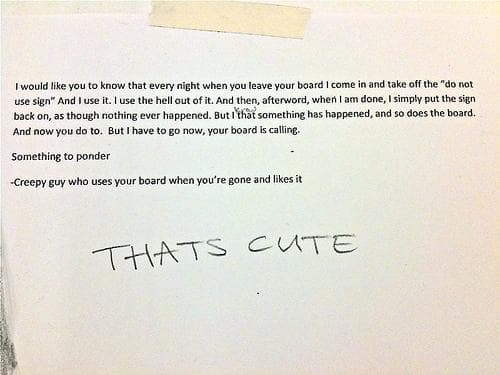 I would like you to know that every night when you leave your board I come in and take off the "do not
use sign" And I use it. I use the hell out of it. And then, afterword, when I am done, I simply put the sign
back on, as though nothing ever happened. But I know that something has happened, and so does the board.
And now you do to.  But I have to go now, your board is calling.
Something to ponder
-Creepy guy who uses your board when you're gone and likes it
THATS CUTE